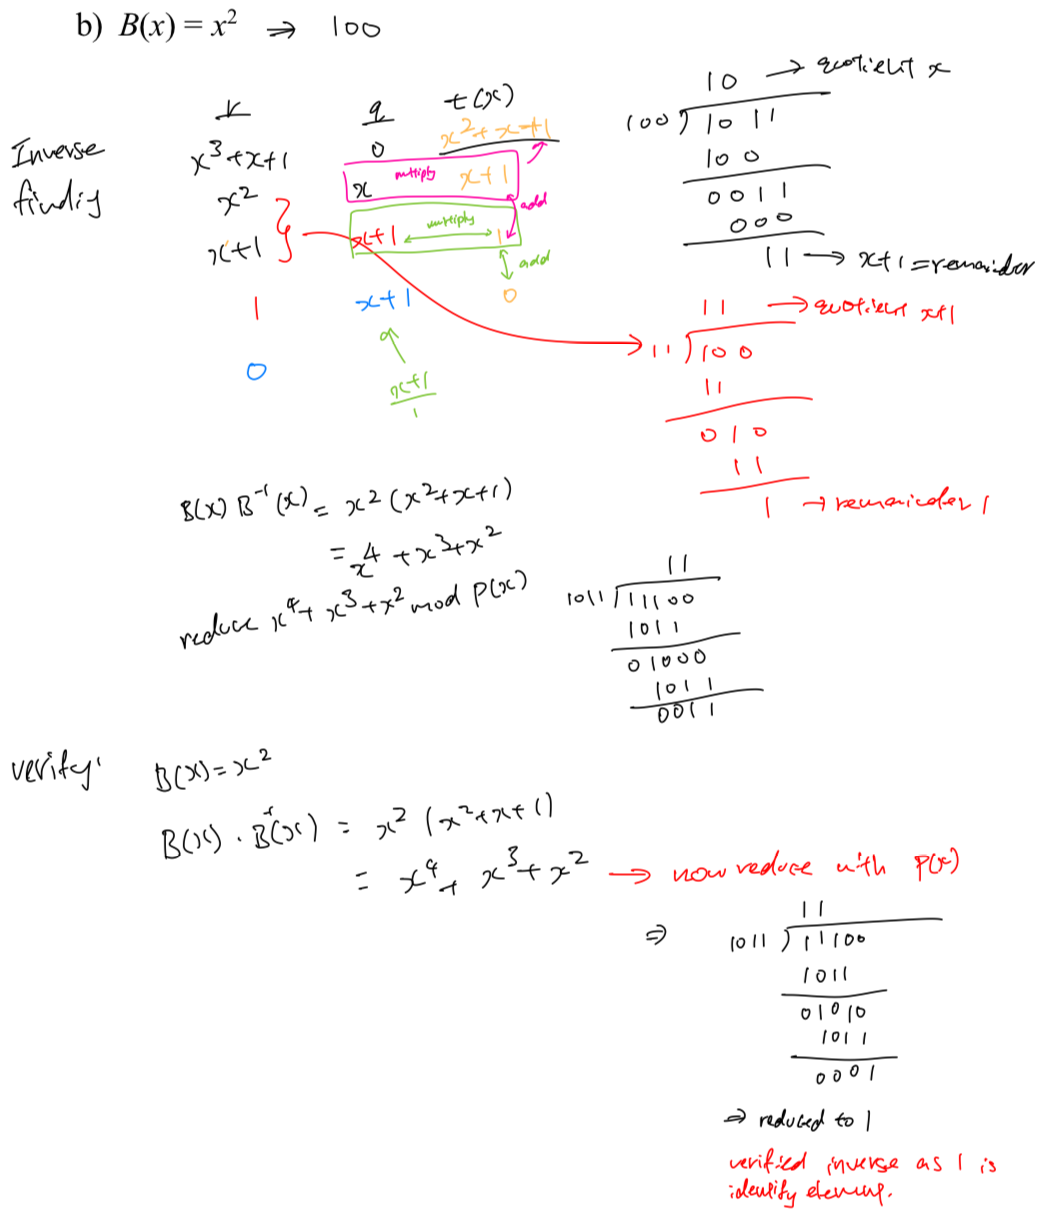 b) B(x) = x² ⇒ 100
Inverse
findig
r q t(x)
x³+x+1 0 x²+x+1
x² x multiply x+1
add
x+1 x+1 multiply 1
add
1 x+1 0
0
x+1
1
10 → quotient x
100 ) 1011
100
0011
000
11 → x+1 = remainder
11 → quotient x+1
11 ) 100
11
010
11
1 → remainder 1
B(x) B⁻¹(x) = x² (x²+x+1)
= x⁴ + x³+x²
reduce x⁴+ x³+x² mod P(x)
11
1011 ) 11100
1011
01000
1011
0011
verify:
B(x) = x²
B(x) . B⁺(x) = x² (x²+x+1)
= x⁴ + x³+x² → now reduce with P(x)
⇒
11
1011 ) 11100
1011
01010
1011
0001
⇒ reduced to 1
verified inverse as 1 is
identity element.